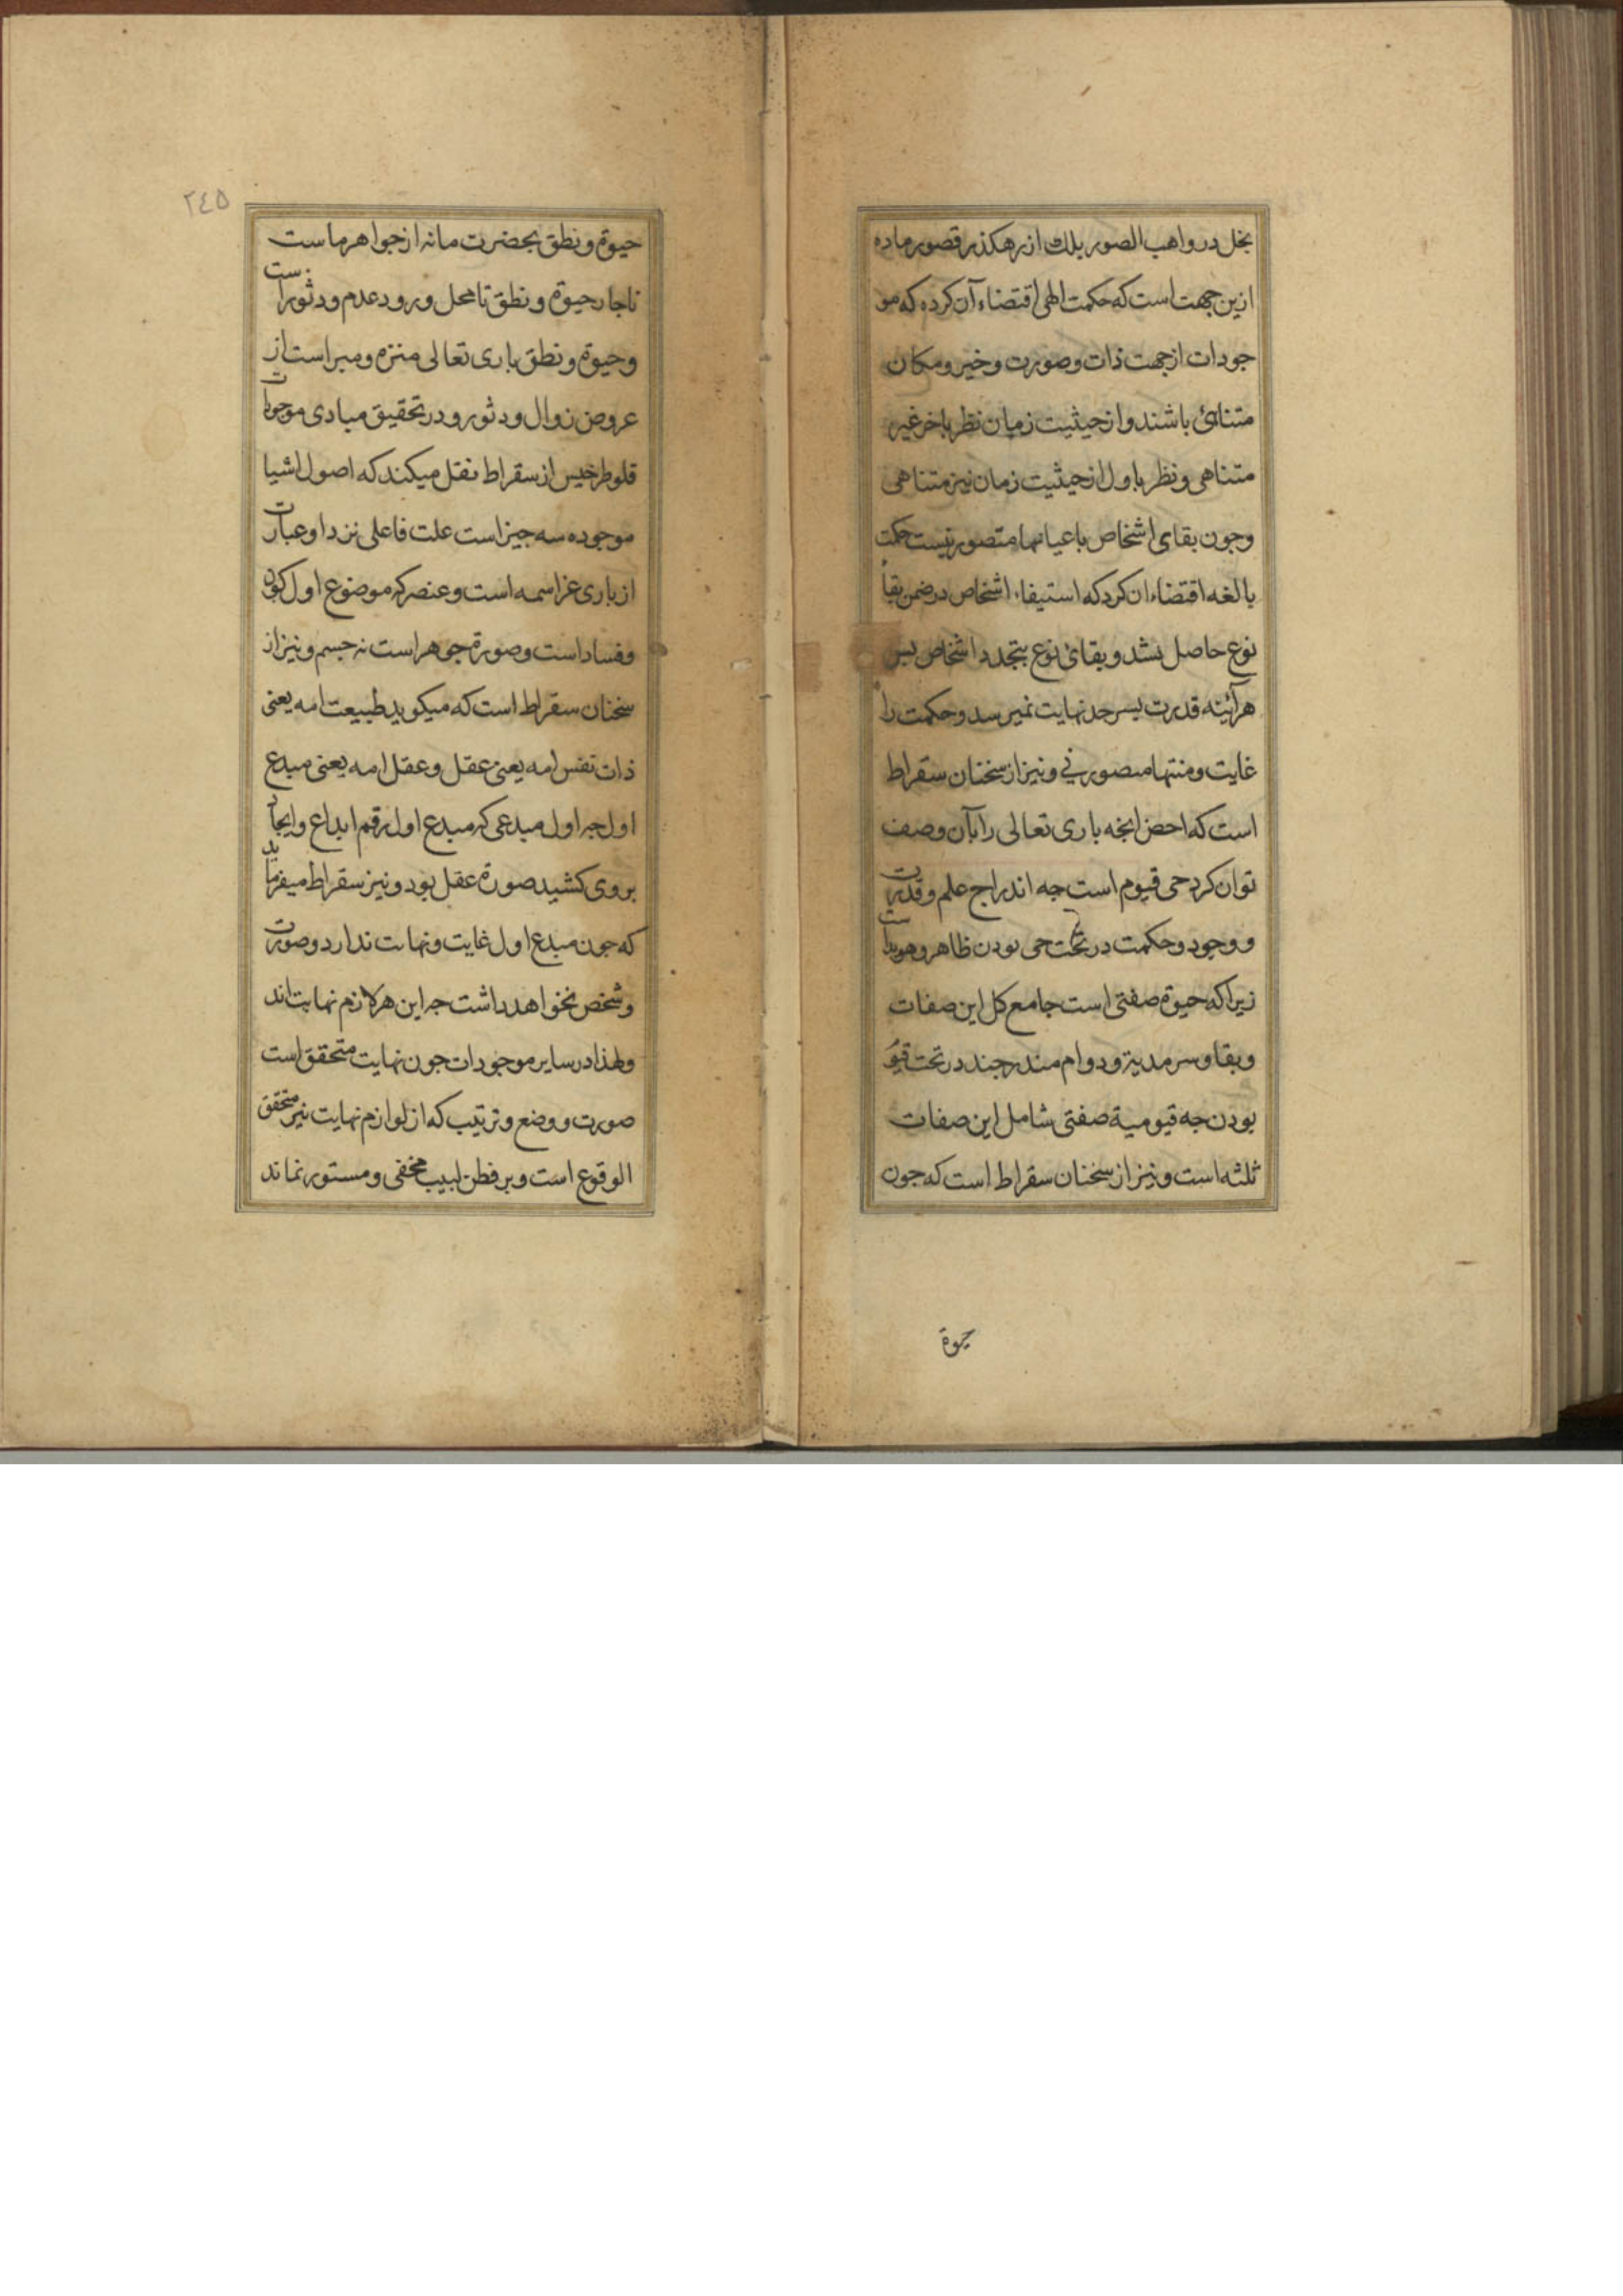 بخل در واهب الصور بلك از رهكذر قصور ماده
ازين جهت است كه حكمت الهى اقتضاء آن كرده كه مو
جودات از جهت ذات وصورت وخير ومكان
متناهى باشند و از حيثيت زمان نظر باخر غير
متناهى ونظر باول از حيثيت زمان نيز متناهى
وجون بقاى اشخاص باعيانها متصور نيست حكمت
بالغه اقتضاء ان كرد كه استيفاء اشخاص در ضمن بقا
نوع حاصل بشد و بقائ نوع بتجدد اشخاص بس
هرآئينه قدرت بسرحد نهايت نميرسد وحكمت را
غايت ومنتها متصور نى ونيز از سخنان سقراط
است كه اخص انجه بارى تعالى را بآن وصف
توان كرد حى قيوم است جه اندراج علم وقدرت
و وجود وحكمت در تحت حى بودن ظاهر وهويداست
زيرا كه حيوة صفتى است جامع كل اين صفات
وبقا وسرمدية ودوام مندرجند در تحت قيو
بودن جه قيومية صفتى شامل اين صفات
ثلثه است ونيز از سخنان سقراط است كه جون
حيوة
٢٤٥
حيوة ونطق بحضرت ما نه از جواهر ماست
ناجار حيوة ونطق تا محل ورود عدم ودثوراست
وحيوة ونطق بارى تعالى منزه ومبراست از
عروض زوال ودثور و در تحقيق مبادى موجودات
قلوطرخيس از سقراط نقل ميكند كه اصول اشيا
موجوده سه جيز است علت فاعلى نزد او عبارت
از بارى عز اسمه است وعنصر كه موضوع اول كون
وفساد است وصورة جوهر است نه جسم ونيز از
سخنان سقراط است كه ميكويد طبيعت امه يعنى
ذات نفس امه يعنى عقل وعقل امه يعنى مبدع
اول جه اول مبدعى كه مبدع اول رقم ابداع وايجاد
بروى كشيد صورة عقل بود ونيز سقراط ميفرمايد
كه جون مبدع اول غايت ونهايت ندارد وصورت
وشخص نخواهد داشت جه اين هر لازم نهايت اند
ولهذا در ساير موجودات جون نهايت متحقق است
صورت ووضع وترتيب كه از لوازم نهايت نيز متحقق
الوقوع است وبر فطن لبيب مخفى ومستور نماند